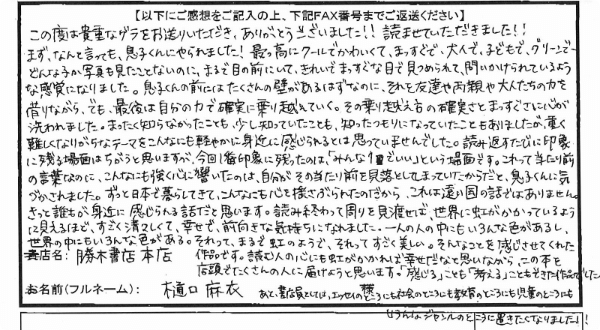 【以下にご感想をご記入の上、下記FAX番号までご返送ください】
この度は貴重なゲラをお送りいただき、ありがとうございました!! 読ませていただきました!!
まず、なんと言っても、息子くんにやられました! 最っ高にクールでかわいくて、まっすぐで、大人で、子どもで、グリーンで…
どんな子か写真も見たことないのに、まるで目の前にいて、きれいでまっすぐな目で見つめられて、問いかけられているよう
な感覚になりました。息子くんの前にはたくさんの壁があるはずなのに、それを友達や両親や大人たちの力を
借りながら、でも、最後は自分の力で確実に乗り越えていく。その乗り越え方の確実さとまっすぐさに心が
洗われました。まったく知らなかったことも、少し知っていたことも、知ったつもりになっていたこともありましたが、重く
難しくなりがちなテーマをこんなにも軽やかに身近に感じられるとは思っていませんでした。読み返すたびに印象
に残る場面はちがうと思いますが、今回1番印象に残ったのは、「みんな1同じでいい」という場面です。これって当たり前
の言葉なのに、こんなにも強く心に響いたのは、自分がその当たり前を見落としてしまっていたからだと、息子くんに気
づかされました。ずっと日本で暮らしてきて、こんなにも心を揺さぶられたのだから、これは遠い国の話ではありません。
きっと誰もが身近に感じられる話だと思います。読み終わって周りを見渡せば、世界に虹がかかっているよう
に見えるほど、すごく清々しくて、幸せで、前向きな気持ちになれました。一人の人の中にもいろんな色があるし、
世界の中にもいろんな色がある。それって、まるで虹のようで、それってすごく美しい。そんなことを感じさせてくれた
書店名: 勝木書店本店 作品です。読む人の心にも虹がかかれば幸せだなと思いながら、この本を
店頭でたくさんの人に届けようと思います。「感じる」ことも「考える」こともできた作品でした
お名前(フルネーム): 樋口 麻衣 あと、書店員としては、エッセイの棚のところにも社会のところにも教育のところにも児童のところにも
いろんなジャンルのところに置きたくなりました!!